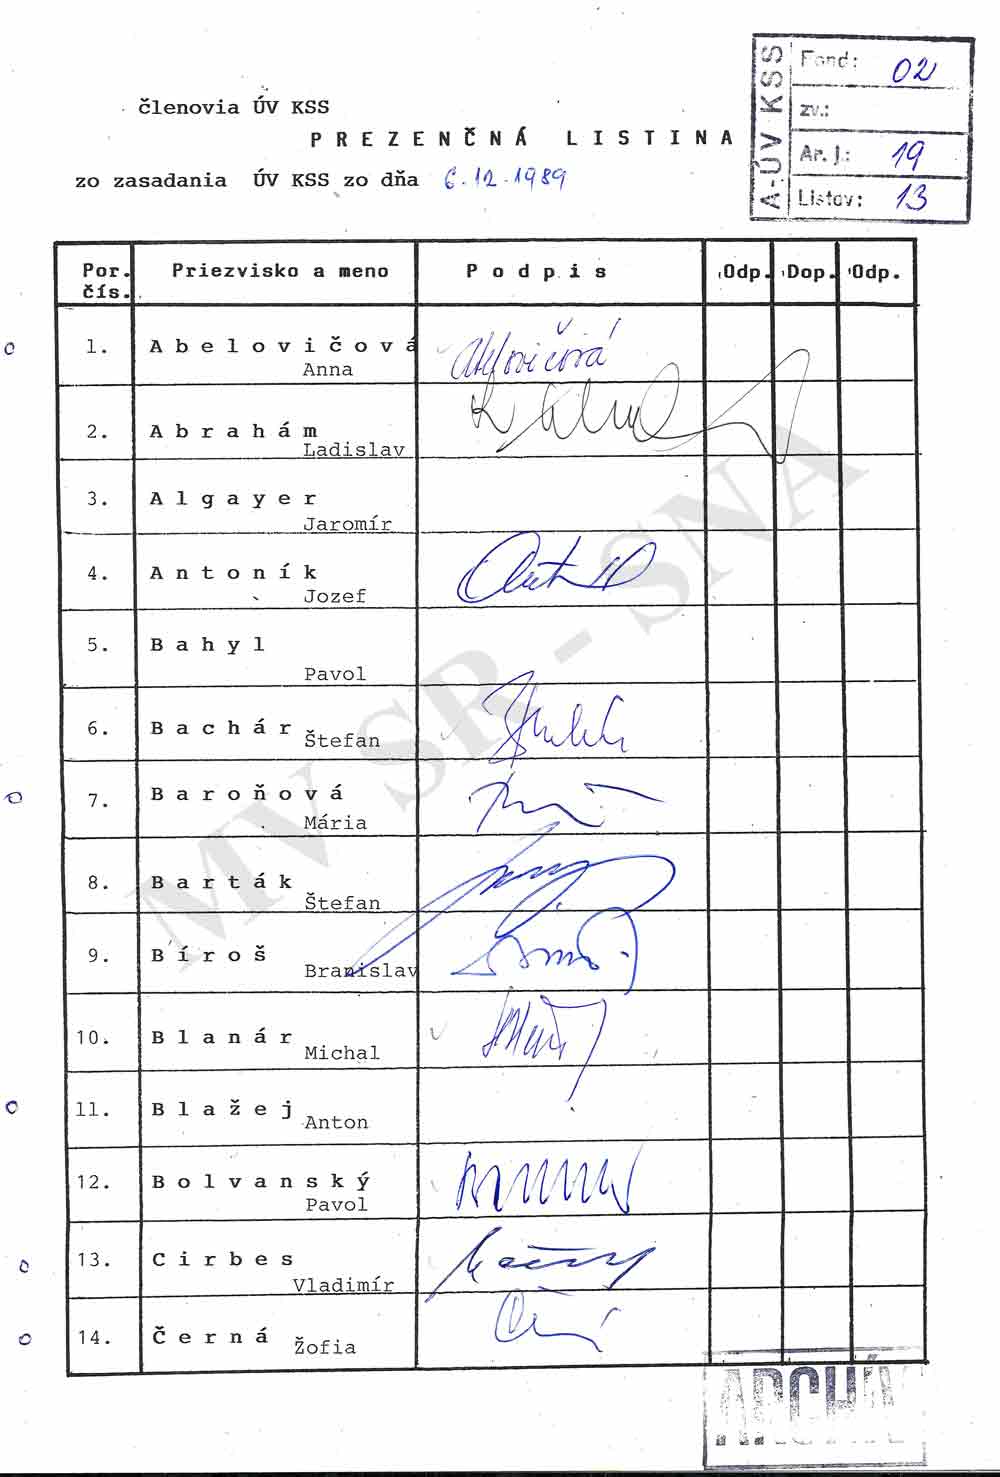 členovia ÚV KSS
PREZENČNÁ LISTINA
zo zasadania ÚV KSS zo dňa 6.12.1989
A-ÚV KSS
Fond: 02
zv.:
Ar. j.: 19
Listov: 13
Por. čís. Priezvisko a meno Podpis Odp. Dop. Odp.
1. Abelovičová
Anna
2. Abrahám
Ladislav
3. Algayer
Jaromír
4. Antoník
Jozef
5. Bahyl
Pavol
6. Bachár
Štefan
7. Baroňová
Mária
8. Barták
Štefan
9. Bíroš
Branislav
10. Blanár
Michal
11. Blažej
Anton
12. Bolvanský
Pavol
13. Cirbes
Vladimír
14. Černá
Žofia
MV SR - SNA
ARCHÍV